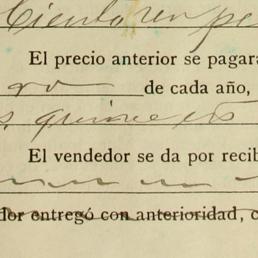 Ciento
El precio anterior se pagar
de cada año,
quince
El vendedor se da por recib
dor entregó con anterioridad, c